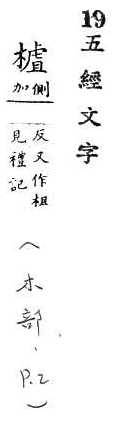 19五經文字
樝
側加
反又作柤
見禮記
（木部、P.2）